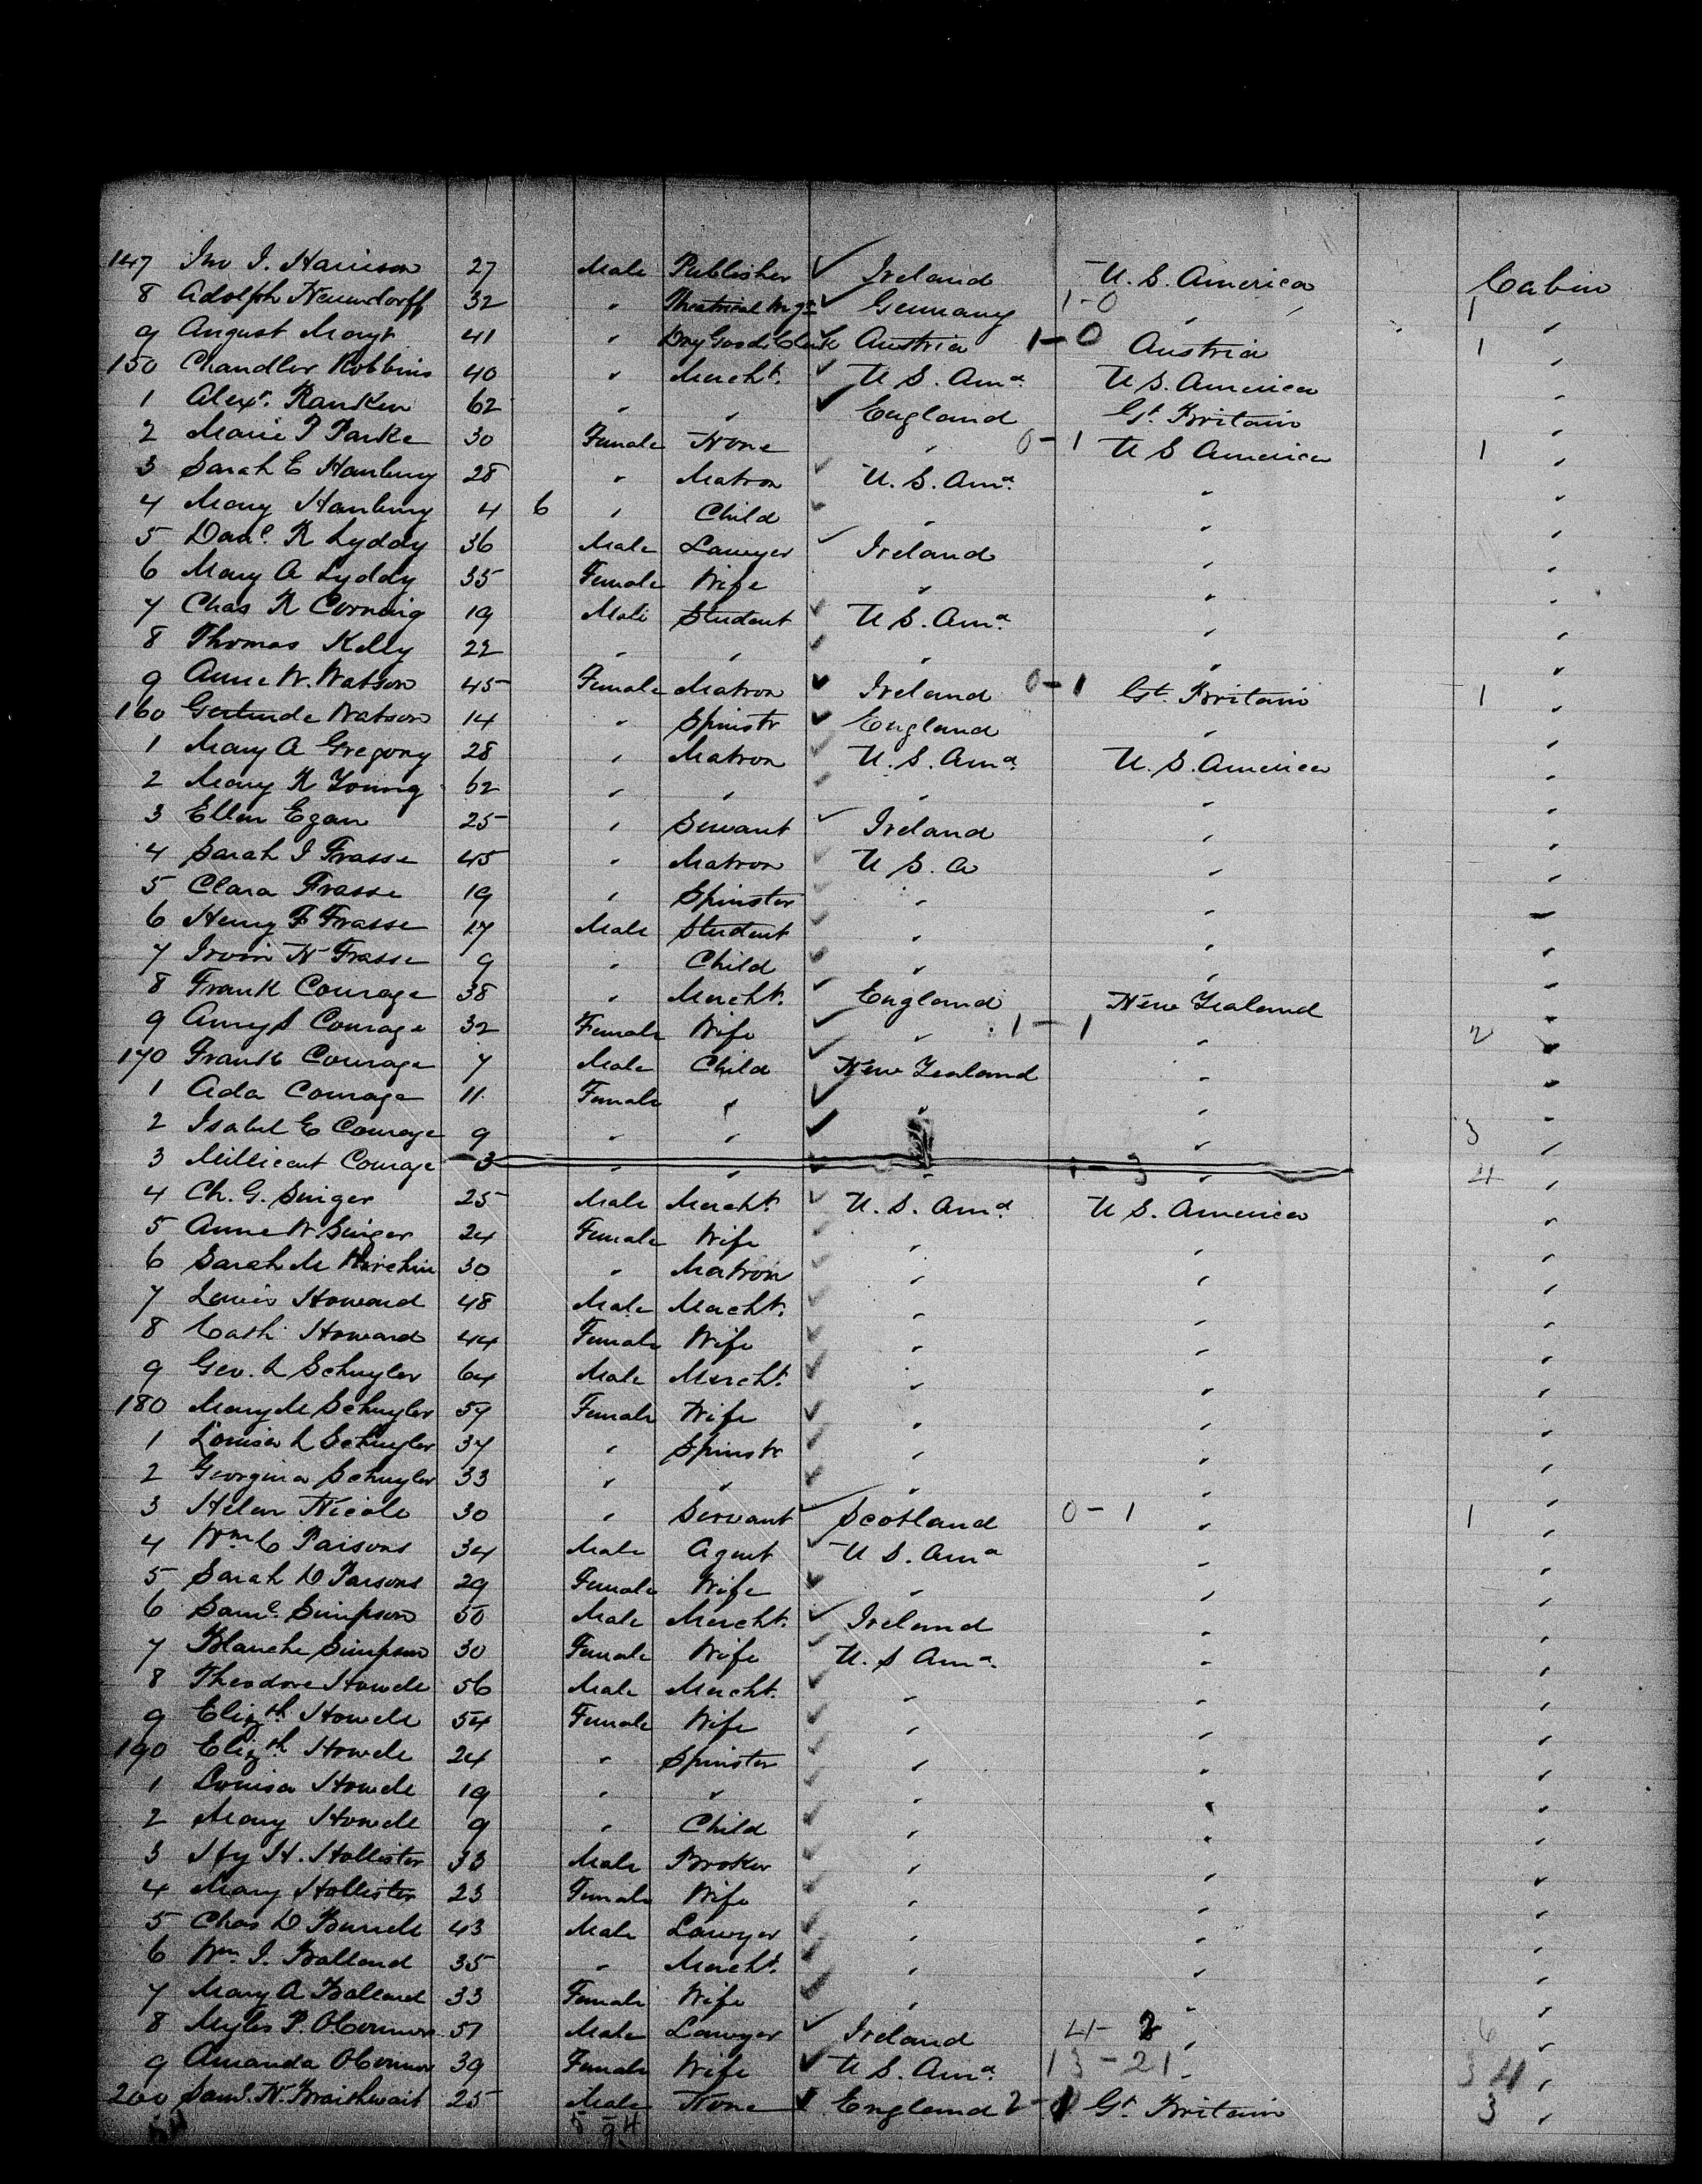 147 Jno I. Harrison 27 Male Publisher ✓ Ireland U.S. America Cabin
8 Adolph Neuendorff 32 " Theatrical Mgr ✓ Germany 1-0 " " 1 "
9 August Mayr 41 " Dry Goods Clerk ✓ Austria 1-0 Austria 1 "
150 Chandler Robbins 40 " Mercht. ✓ U S. Ama U.S. America "
1 Alexr. Rankin 62 " " ✓ England Gt. Britain "
2 Marie P Parke 30 Female None " 0-1 U S America 1 "
3 Sarah E Hanbury 28 " Matron ✓ U. S. Ama. " "
4 Mary Hanbury 4 6 " Child ✓ " " "
5 Danl. R Lyddy 36 Male Lawyer ✓ Ireland " "
6 Mary A Lyddy 35 Female Wife " " "
7 Chas R Corning 19 Male Student ✓ U S. Ama. " "
8 Thomas Kelly 22 " " ✓ " " "
9 Anne W. Watson 45 Female Matron ✓ Ireland 0-1 Gt. Britain 1 "
160 Gertrude Watson 14 " Spinstr ✓ England " "
1 Mary A Gregory 28 " Matron ✓ U. S. Ama. U. S. America "
2 Mary R Young 62 " " ✓ " " "
3 Ellen Egan 25 " Servant ✓ Ireland " "
4 Sarah I Frasse 45 " Matron ✓ U S. A " "
5 Clara Frasse 19 " Spinster ✓ " " "
6 Henry F Frasse 17 Male Student ✓ " " "
7 Irvin H Frasse 9 " Child ✓ " " "
8 Frank Courage 38 " Mercht. ✓ England New Zealand "
9 Amy S Courage 32 Female Wife ✓ " 1-1 " 2 "
170 Frank Courage 7 Male Child ✓ New Zealand " "
1 Ada Courage 11 Female " ✓ " " "
2 Isabel E Courage 9 " " ✓ " 3 "
3 Millicent Courage 3 " " ✓ " 1-3 " 4 "
4 Ch. G. Singer 25 Male Mercht. ✓ U. S. Ama. U S. America "
5 Anne W Singer 24 Female Wife " " "
6 Sarah M 30 " Matron ✓ " " "
7 Louis Howard 48 Male Mercht. ✓ " " "
8 Cath Howard 44 Female Wife ✓ " " "
9 Geo. L Schuyler 64 Male Mercht. ✓ " " "
180 Mary M Schuyler 57 Female Wife ✓ " " "
1 Louisa L Schuyler 37 " Spinstr ✓ " " "
2 Georgina Schuyler 33 " " ✓ " " "
3 Helen Nicole 30 " Servant ✓ Scotland 0-1 " 1 "
4 Wm C Parsons 34 Male Agent ✓ U S. Ama " "
5 Sarah D Parsons 29 Female Wife ✓ " " "
6 Saml. Simpson 50 Male Mercht. ✓ Ireland " "
7 Blanche Simpson 30 Female Wife ✓ U. S Ama. " "
8 Theodore Howell 56 Male Mercht. ✓ " " "
9 Elizth. Howell 54 Female Wife ✓ " " "
190 Elizth Howell 24 " Spinster ✓ " " "
1 Louisa Howell 19 " " ✓ " " "
2 Mary Howell 9 " Child ✓ " " "
3 Hy H. Hollister 33 Male Broker ✓ " " "
4 Mary Hollister 23 Female Wife ✓ " " "
5 Chas D Burrell 43 Male Lawyer ✓ " " "
6 Wm. I. Ballard 35 " Mercht. ✓ " " "
7 Mary A Ballard 33 Female Wife ✓ " " "
8 Myles P. OConnor 51 Male Lawyer ✓ Ireland 4-2 " 6 "
9 Amanda OConnor 39 Female Wife ✓ U S. Ama. 13-21 " 34 "
200 Saml. N. Braithwait 25 Male None ✓ England 2-1 Gt Britain 3 "